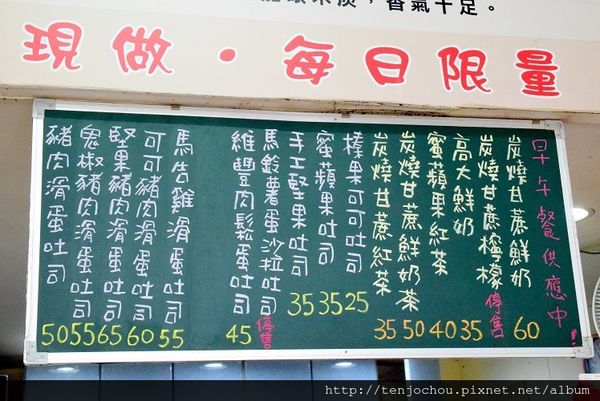 香氣十足。
現做・每日限量
早午餐供應中!
炭燒甘蔗鮮奶 60
炭燒甘蔗檸檬 停售
高大鮮奶 35
蜜蘋果紅茶 40
炭燒甘蔗鮮奶茶 50
炭燒甘蔗紅茶 35
榛果可可吐司 25
蜜蘋果吐司 35
手工堅果吐司 35
馬鈴薯蛋沙拉吐司 停售
維豐肉鬆蛋吐司 45
馬告雞滑蛋吐司 55
可可豬肉滑蛋吐司 60
堅果豬肉滑蛋吐司 65
鬼椒豬肉滑蛋吐司 55
豬肉滑蛋吐司 50
http://tenjochou.pixnet.net/album